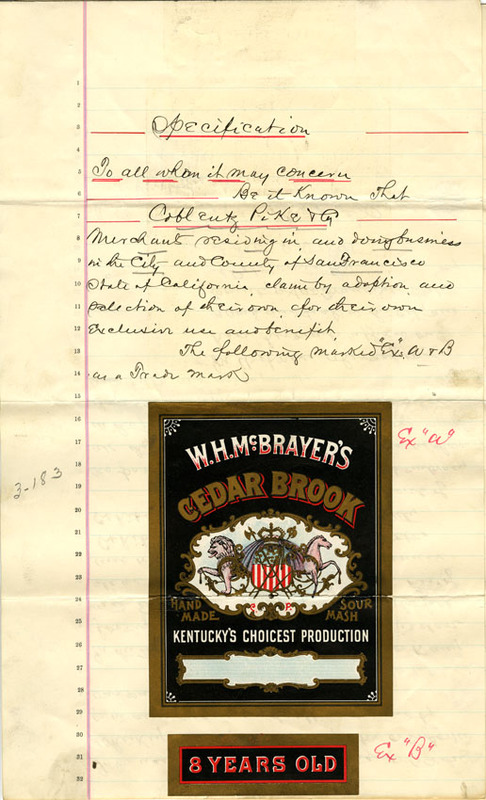 Specification
To all whom it may concern
Be it Known That
Coblentz Pike & Co
Merchants residing in, and doing business
in the City and County of San Francisco
State of California, claim by adoption and
selection of their own, for their own
exclusive use and benefit
The following marked "Exs" A & B
as a Trade mark
1
2
3
4
5
6
7
8
9
10
11
12
13
14
15
16
17
18
19
20
21
22
23
24
25
26
27
28
29
30
31
32
3-183
Ex "A"
W.H. McBRAYER'S
CEDAR BROOK
HAND MADE
C P
SOUR MASH
KENTUCKY'S CHOICEST PRODUCTION
Ex "B"
8 YEARS OLD